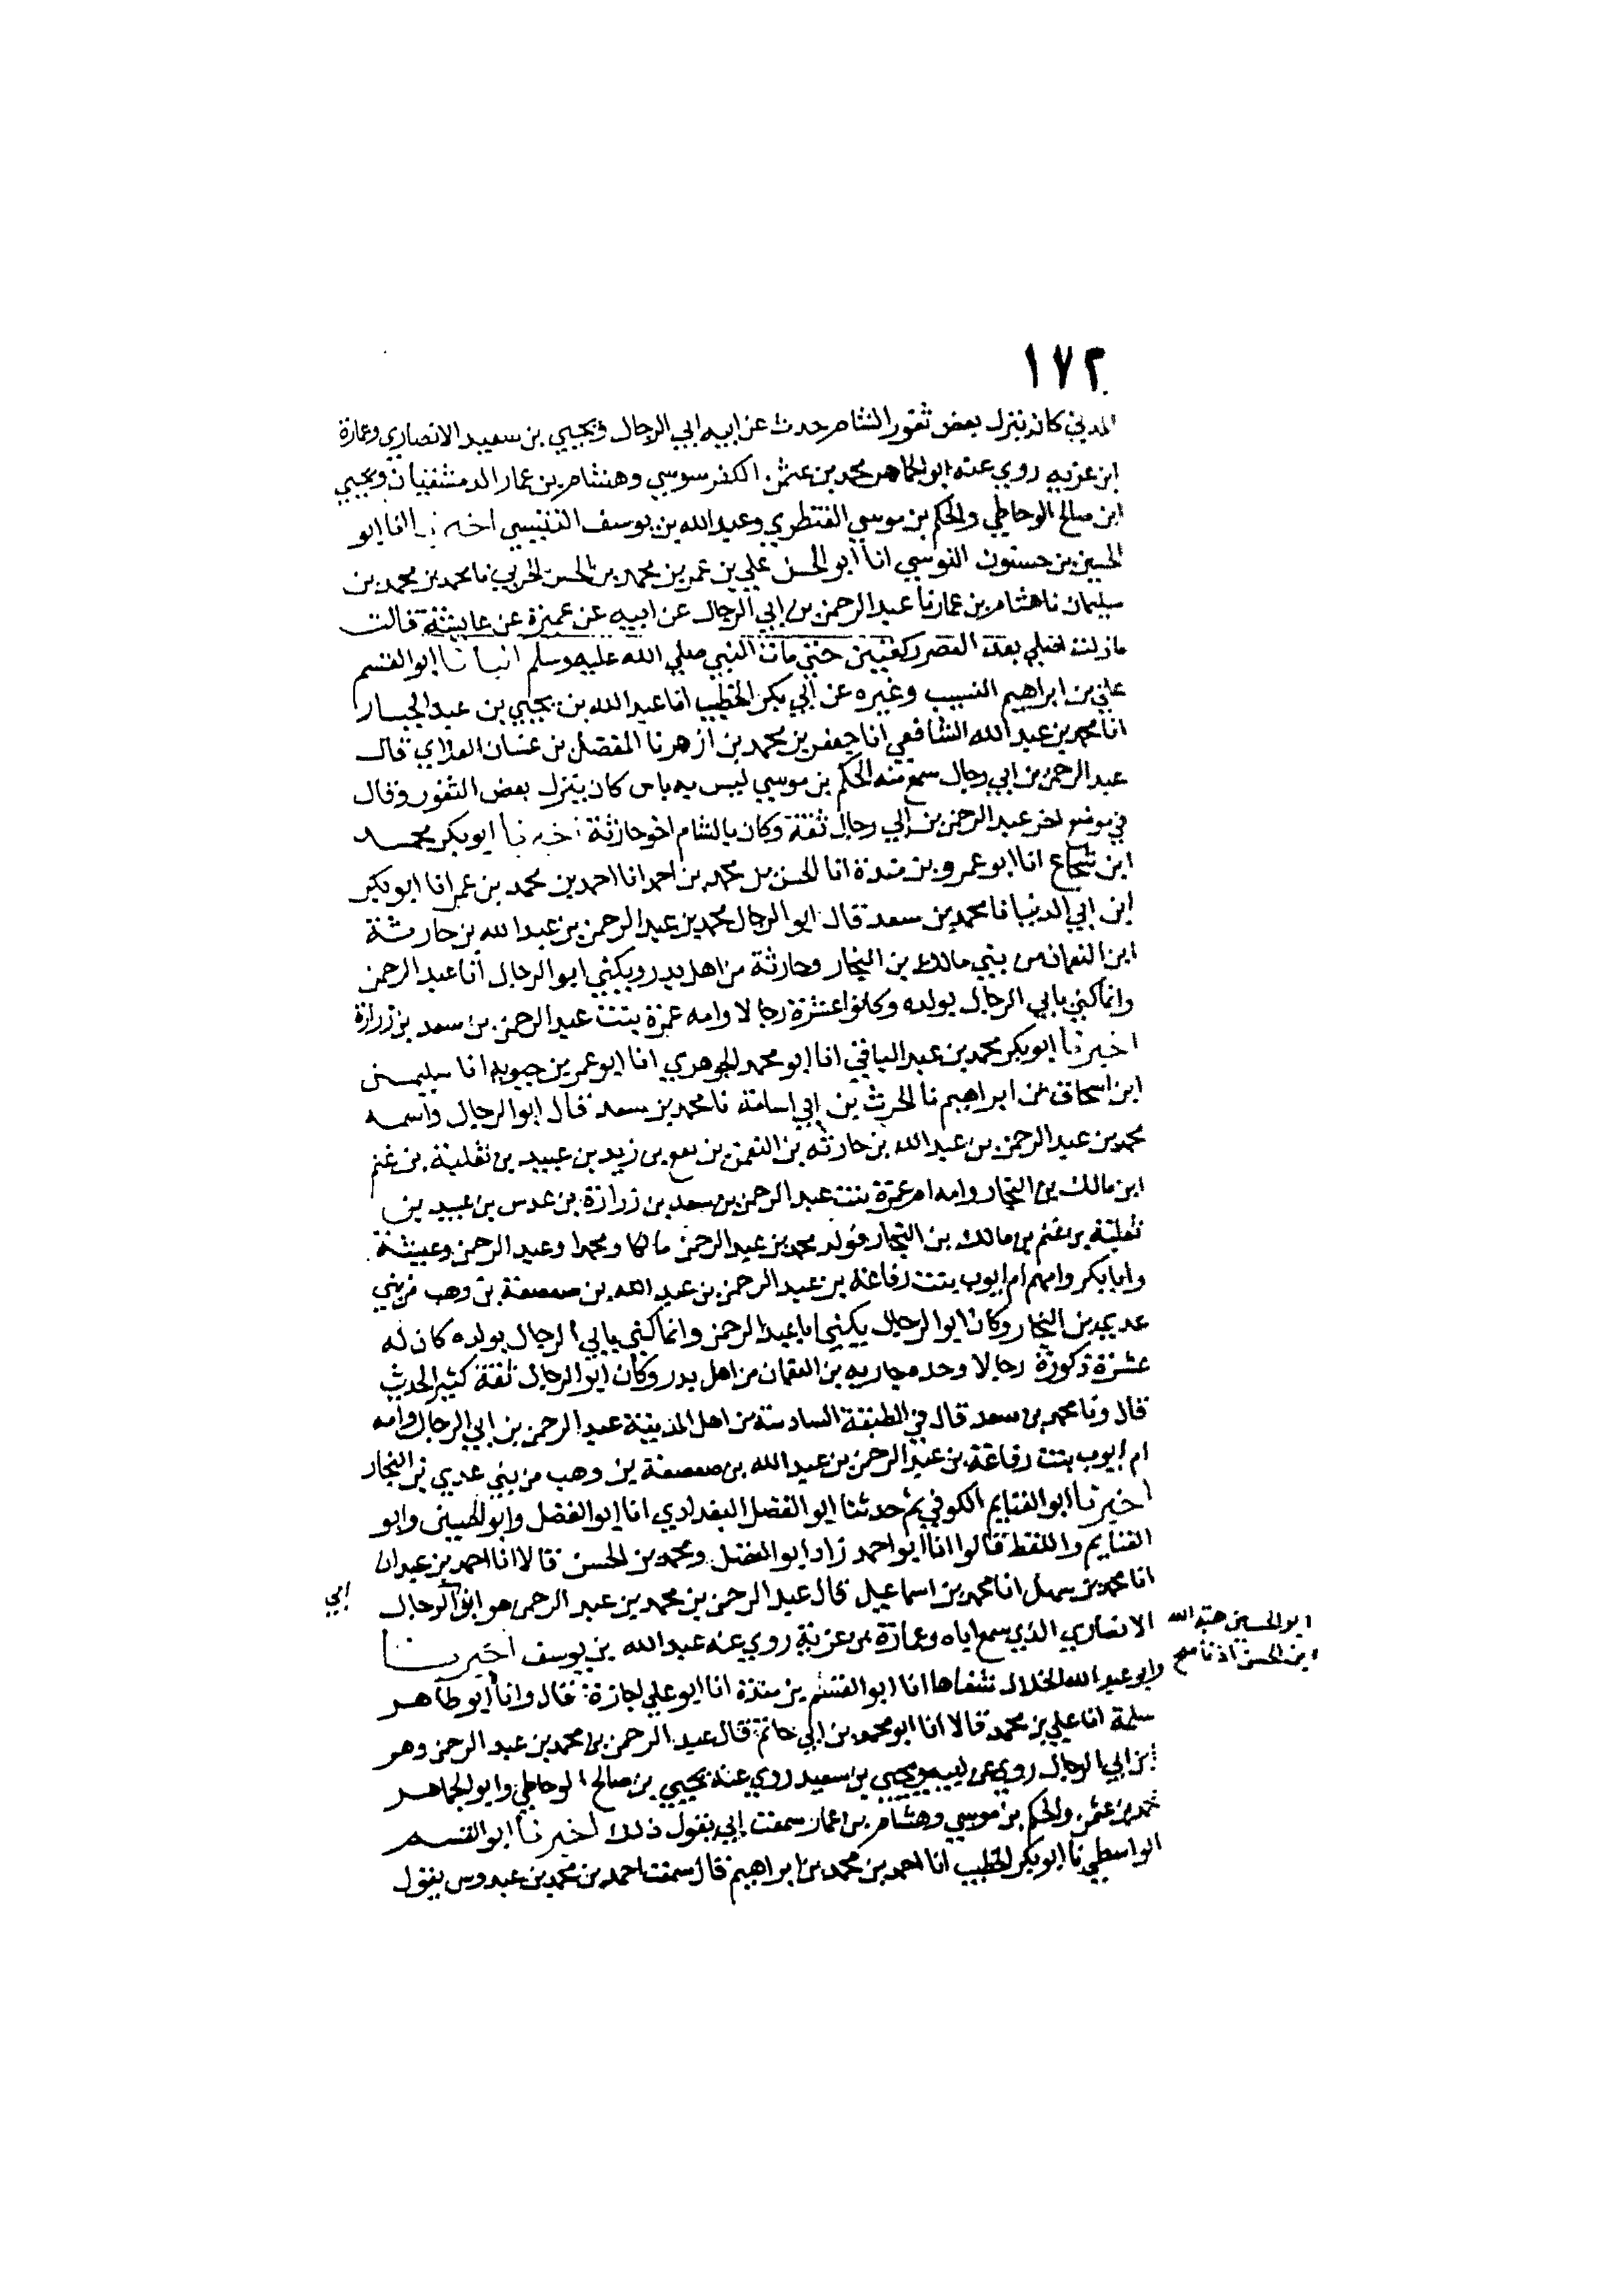 ١٧٢
المديني كان ينزل بعض ثغور الشام حدث عن ابيه ابي الرجال ويحيي بن سعيد الانصاري وعمارة
ابن غزيه روي عنه ابو الجماهر محمد بن عثمن الكفرسوسي وهشام بن عمار الدمشقيان ويحيي
ابن صالح الوحاظي والحكم بن موسي القنطري وعبد الله بن يوسف التنيسي اخبرنا ابو
الحسين بن حسنون النرسي انا ابو الحسن علي بن عمر بن محمد بن الحسن الحربي نا محمد بن محمد بن
سليمان نا هشام بن عمار نا عبد الرحمن بن ابي الرجال عن ابيه عن عمرة عن عايشة قالت
مازلت اصلي بعد العصر ركعتين حتي مات النبي صلي الله عليه وسلم انبانا ابو القسم
علي بن ابراهيم النسيب وغيره عن ابي بكر الخطيب انا عبد الله بن يحيي بن عبد الجبار
انا محمد بن عبد الله الشافعي انا جعفر بن محمد بن ازهر نا المفضل بن غسان الغلابي قال
عبد الرحمن بن ابي رجال سمع منه الحكم بن موسي ليس به باس كان ينزل بعض الثغور وقال
في موضع اخر عبد الرحمن بن ابي رجال ثقة وكان بالشام اخو حارثة اخبرنا ابو بكر محمد
ابن شجاع انا ابو عمرو بن مندة انا الحسن بن محمد بن احمد انا احمد بن محمد بن عمر انا ابو بكر
ابن ابي الدنيا نا محمد بن سعد قال ابو الرجال محمد بن عبد الرحمن بن عبد الله بن حارثة
ابن النعمان من بني مالك بن النجار وحارثة من اهل بدر ويكني ابو الرجال أبا عبد الرحمن
وانما كني بابي الرجال بولده وكانوا عشرة رجالا وامه عمرة بنت عبد الرحمن بن سعد بن زرارة
اخبرنا ابو بكر محمد بن عبد الباقي انا ابو محمد الجوهري انا ابو عمر بن حيويه انا سليمن
ابن اسحاق بن ابراهيم نا الحرث بن ابي اسامة نا محمد بن سعد قال ابو الرجال واسمه
محمد بن عبد الرحمن بن عبد الله بن حارثه بن النعمن بن نفع بن زيد بن عبيد بن ثعلبة بن غنم
ابن مالك بن النجار وامه ام عمرة بنت عبد الرحمن بن سعد بن زرارة بن عدس بن عبيد بن
ثعلبة بن غنم بن مالك بن النجار فولد محمد بن عبد الرحمن مالكا ومحمدا وعبد الرحمن وعيشة
وابا بكر وامهم ام ايوب بنت رفاعة بن عبد الرحمن بن عبد الله بن صعصعة بن وهب من بني
عدي بن النجار وكان ابو الرجال يكني ابا عبد الرحمن وانما كني بابي الرجال بولده كان له
عشرة ذكورة رجالا وجده حارثه بن النعمان من اهل بدر وكان ابو الرجال ثقة كثير الحديث
قال ونا محمد بن سعد قال في الطبقة السادسة من اهل المدينة عبد الرحمن بن ابي الرجال وامه
ام ايوب بنت رفاعة بن عبد الرحمن بن عبد الله بن صعصعة بن وهب من بني عدي بن النجار
اخبرنا ابو الغنايم الكوفي ثم حدثنا ابو الفضل البغدادي انا ابو الفضل وابو الحسين وابو
الغنايم واللفظ قالوا انا ابو احمد زاد ابو الفضل ومحمد بن الحسن قالا انا احمد بن عبدان
انا محمد بن سهل انا محمد بن اسماعيل قال عبد الرحمن بن محمد بن عبد الرحمن هو ابو الرجال
ابي
الانصاري الذي سمع اباه وعمارة بن غزية روي عنه عبد الله بن يوسف اخبرنا
ابو الحسين هبة الله
ابن الحسن اذنا صح
وابو عبد الله الخلال شفاها انا ابو القسم بن مندة انا ابو علي اجازة قال وانا ابو طاهر
سلمة انا علي بن محمد قالا انا ابو محمد بن ابي حاتم قال عبد الرحمن بن محمد بن عبد الرحمن وهو
ابن ابي الرجال روي عن ابيه ويحيي بن سعيد روي عنه يحيي بن صالح الوحاظي وابو الجماهر
محمد بن عثمن والحكم بن موسي وهشام بن عمار سمعت ابي يقول ذلك اخبرنا ابو القسم
الواسطي نا ابو بكر الخطيب انا احمد بن محمد بن ابراهيم قال سمعت احمد بن محمد بن عبدوس يقول